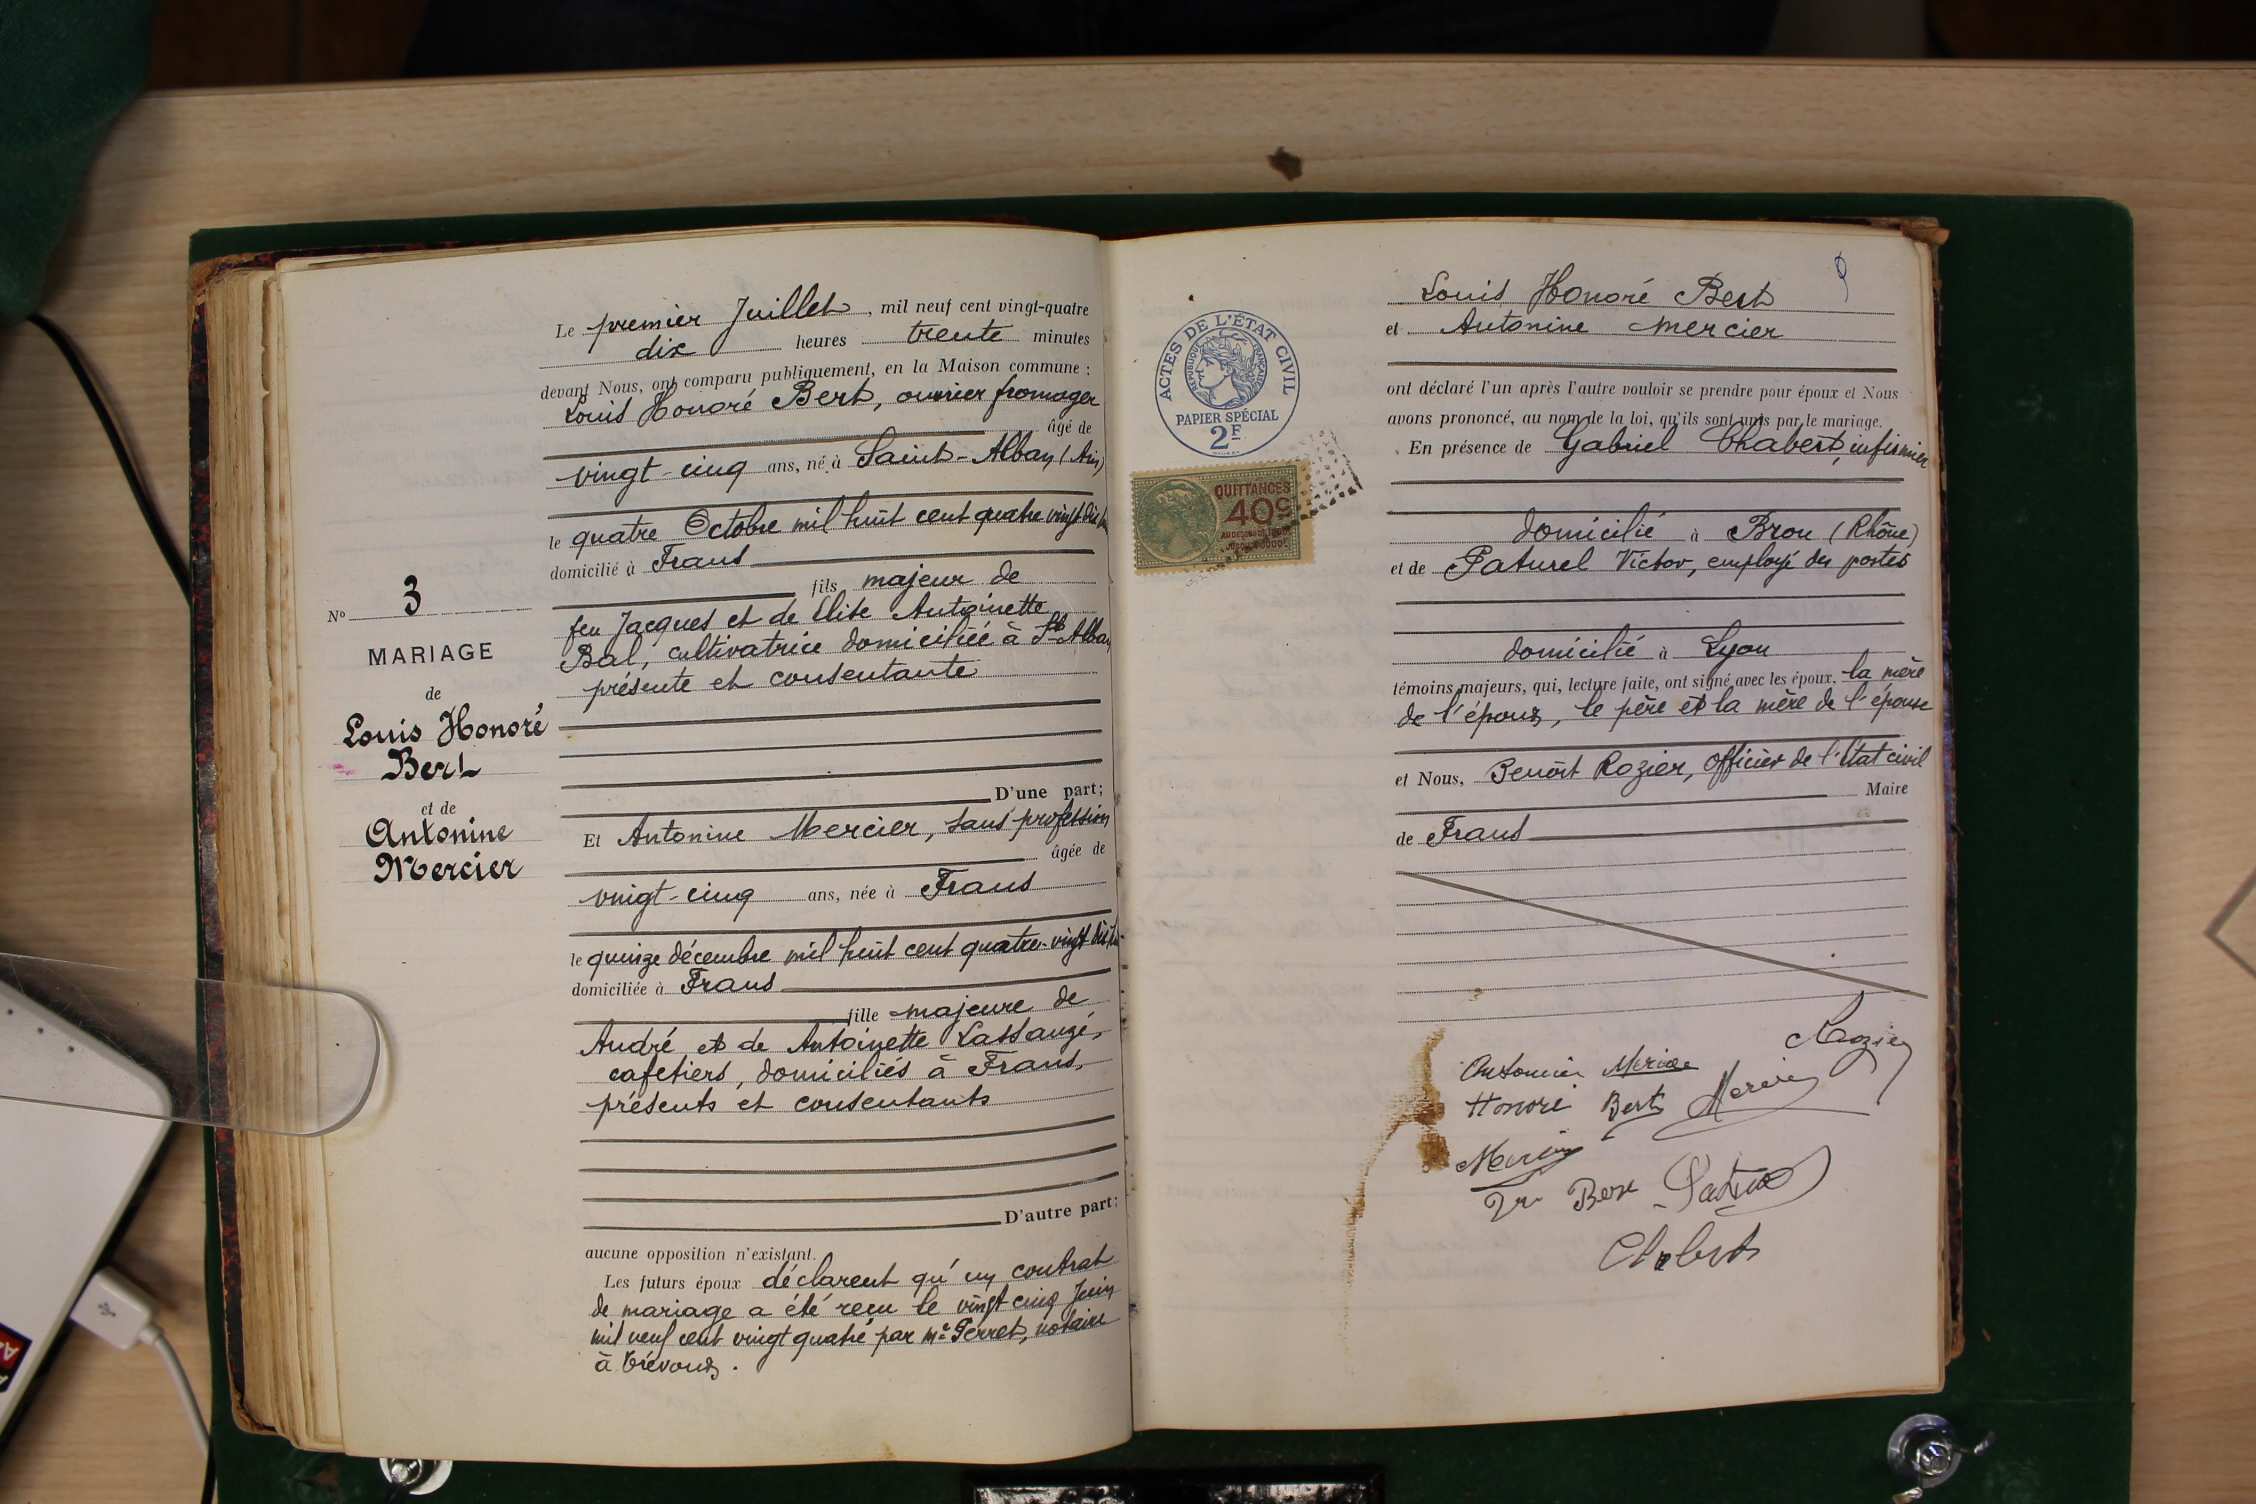 Nº 3
MARIAGE
de
Louis Honoré
Bert
et de
Antonine
Mercier
Le premier Juillet, mil neuf cent vingt-quatre
dix heures trente minutes
devant Nous, ont comparu publiquement, en la Maison commune :
Louis Honoré Bert, ouvrier fromager
âgé de
vingt-cinq ans, né à Saint-Alban (Ain)
le quatre Octobre mil huit cent quatre vingt dix
domicilié à Frans
fils majeur de
feu Jacques et de Elise Antoinette
Bal, cultivatrice domiciliée à St Alban
présente et consentante
D'une part;
Et Antonine Mercier, sans profession
âgée de
vingt-cinq ans, née à Frans
le quinze décembre mil huit cent quatre-vingt dix
domiciliée à Frans
fille majeure de
André et de Antoinette Lassaugé,
cafetiers, domiciliés à Frans,
présents et consentants
D'autre part;
aucune opposition n'existant.
Les futurs époux déclarent qu'un contrat
de mariage a été reçu le vingt cinq Juin
mil neuf cent vingt quatre par Me Perret, notaire
à Trévoux.
9
ACTES DE L'ÉTAT CIVIL
RÉPUBLIQUE FRANÇAISE
PAPIER SPÉCIAL
2F
QUITTANCES
40c
Louis Honoré Bert
et Antonine Mercier
ont déclaré l'un après l'autre vouloir se prendre pour époux et Nous
avons prononcé, au nom de la loi, qu'ils sont unis par le mariage.
En présence de Gabriel Chabert, infirmier
domicilié à Bron (Rhône)
et de Paturel Victor, employé des postes
domicilié à Lyon
témoins majeurs, qui, lecture faite, ont signé avec les époux, la mère
de l'époux, le père et la mère de l'épouse
et Nous, Benoît Rozier, Officier de l'Etat civil
Maire
de Frans
Rozier
Antonine Mercier
Honoré Bert Mercier
Mercier
Bert Paturel
Chabert